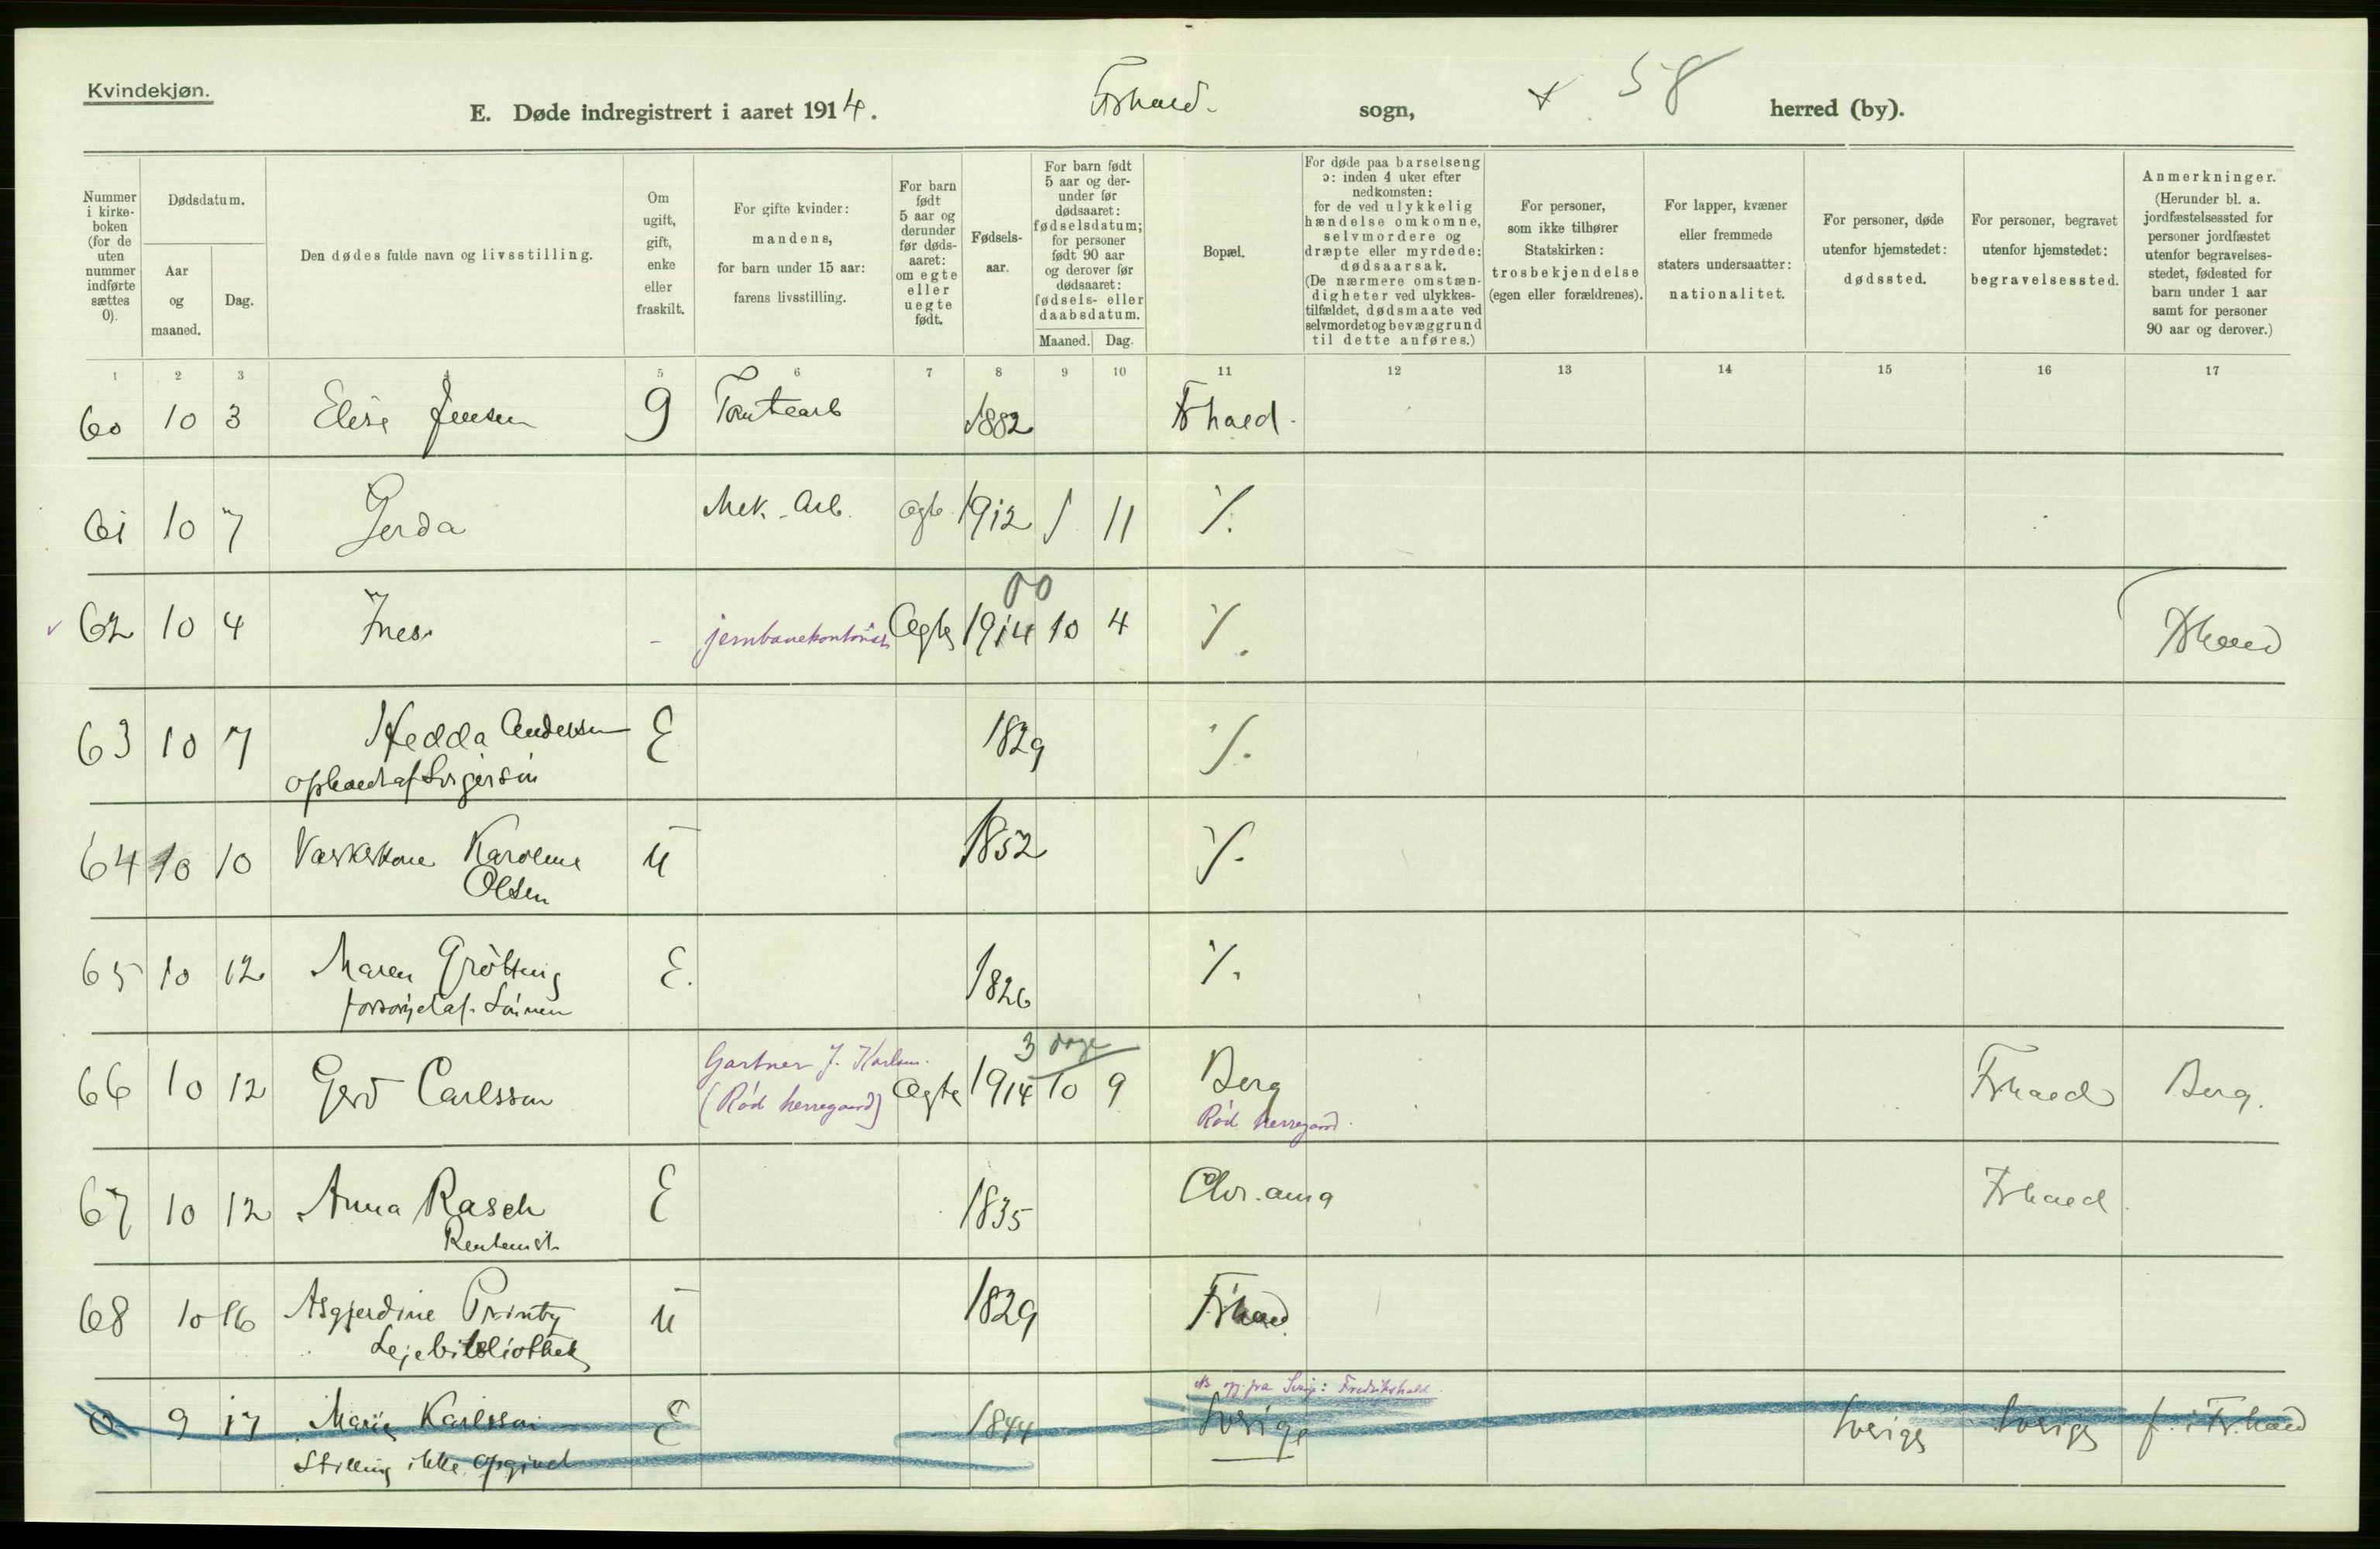 Kvindekjøn.
E. Døde indregistrert i aaret 1914. Frhald. sogn, 58 herred (by).
Nummer i kirke-boken (for de uten nummer indførte sættes 0).
Dødsdatum.
Aar og maaned.
Dag.
Den dødes fulde navn og livsstilling.
Om ugift, gift, enke eller fraskilt.
For gifte kvinder: mandens, for barn under 15 aar: farens livsstilling.
For barn født 5 aar og derunder før døds-aaret: om egte eller uegte født.
Fødsels-aar.
For barn født 5 aar og der-under før dødsaaret: fødselsdatum; for personer født 90 aar og derover før dødsaaret: fødsels- eller daabsdatum.
Maaned. Dag.
Bopæl.
For døde paa barselseng ɔ: inden 4 uker efter nedkomsten: for de ved ulykkelig hændelse omkomne, selvmordere og dræpte eller myrdede: dødsaarsak. (De nærmere omstæn-digheter ved ulykkes-tilfældet, dødsmaate ved selvmord et og bevæggrund til dette anføres.)
For personer, som ikke tilhører Statskirken: trosbekjendelse (egen eller forældrenes).
For lapper, kvæner eller fremmede staters undersaatter: nationalitet.
For personer, døde utenfor hjemstedet: dødssted.
For personer, begravet utenfor hjemstedet: begravelsessted.
Anmerkninger. (Herunder bl. a. jordfæstelsessted for personer jordfæstet utenfor begravelses-stedet, fødested for barn under 1 aar samt for personer 90 aar og derover.)
1 2 3 4 5 6 7 8 9 10 11 12 13 14 15 16 17
60 10 3 Elise Jensen g Tomtearb 1882 Frhald.
61 10 7 Gerda Mek. Arb. ægte 1912 1 11 ٪
00
62 10 4 Ines. - jernbanekontorist Ægte 1914 10 4 ٪ Frhald
63 10 7 Hedda Andersen E 1829 ٪
64 10 10 Vaskekone Karoline u 1852 ٪
Olsen
65 10 12 Maren Grötting E. 1826 ٪
forsørjet af. Sönnen
Gartner J. Karlsen. 3 dage
66 10 12 Gerd Carlsson (Rød herregaard) Ægte 1914 10 9 Berg Frhald Berg.
Rød herregaard.
67 10 12 Anna Rasch E 1835 Chr.ania Frhald.
Rentenist
68 10 16 Asgjerdine Prinby u 1829 Frhald
Lejebibliothek
opg. fra Sverige: Fredrikshald.
0 9 17 Marie Karlsson E 1844 Sverige Sverige Sverige f. i Fr.hald
Stilling ikke opgivet